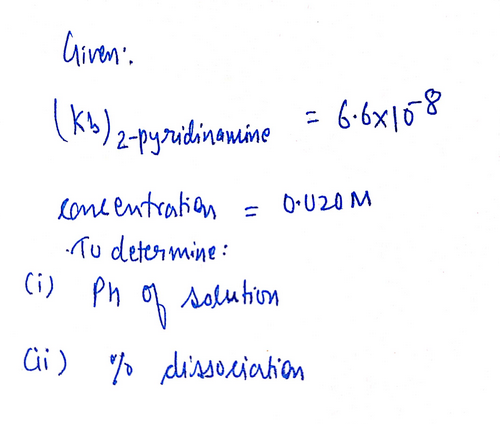 Given:.
(Kb) 2-pyridinamine = 6.6x10-8
concentration = 0.020M
.To determine:
(i) PH of solution
(ii) % dissociation